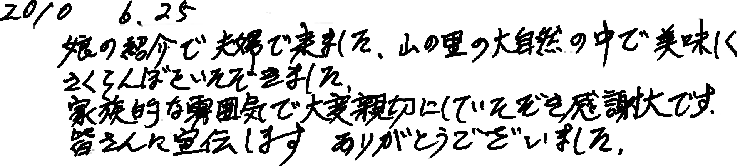 2010 6.25
娘の紹介で夫婦で来ました、山の里の大自然の中で美味しく
さくらんぼをいただきました、
家族的な雰囲気で大変親切にしていただき感謝大です.
皆さんに宣伝します ありがとうございました.